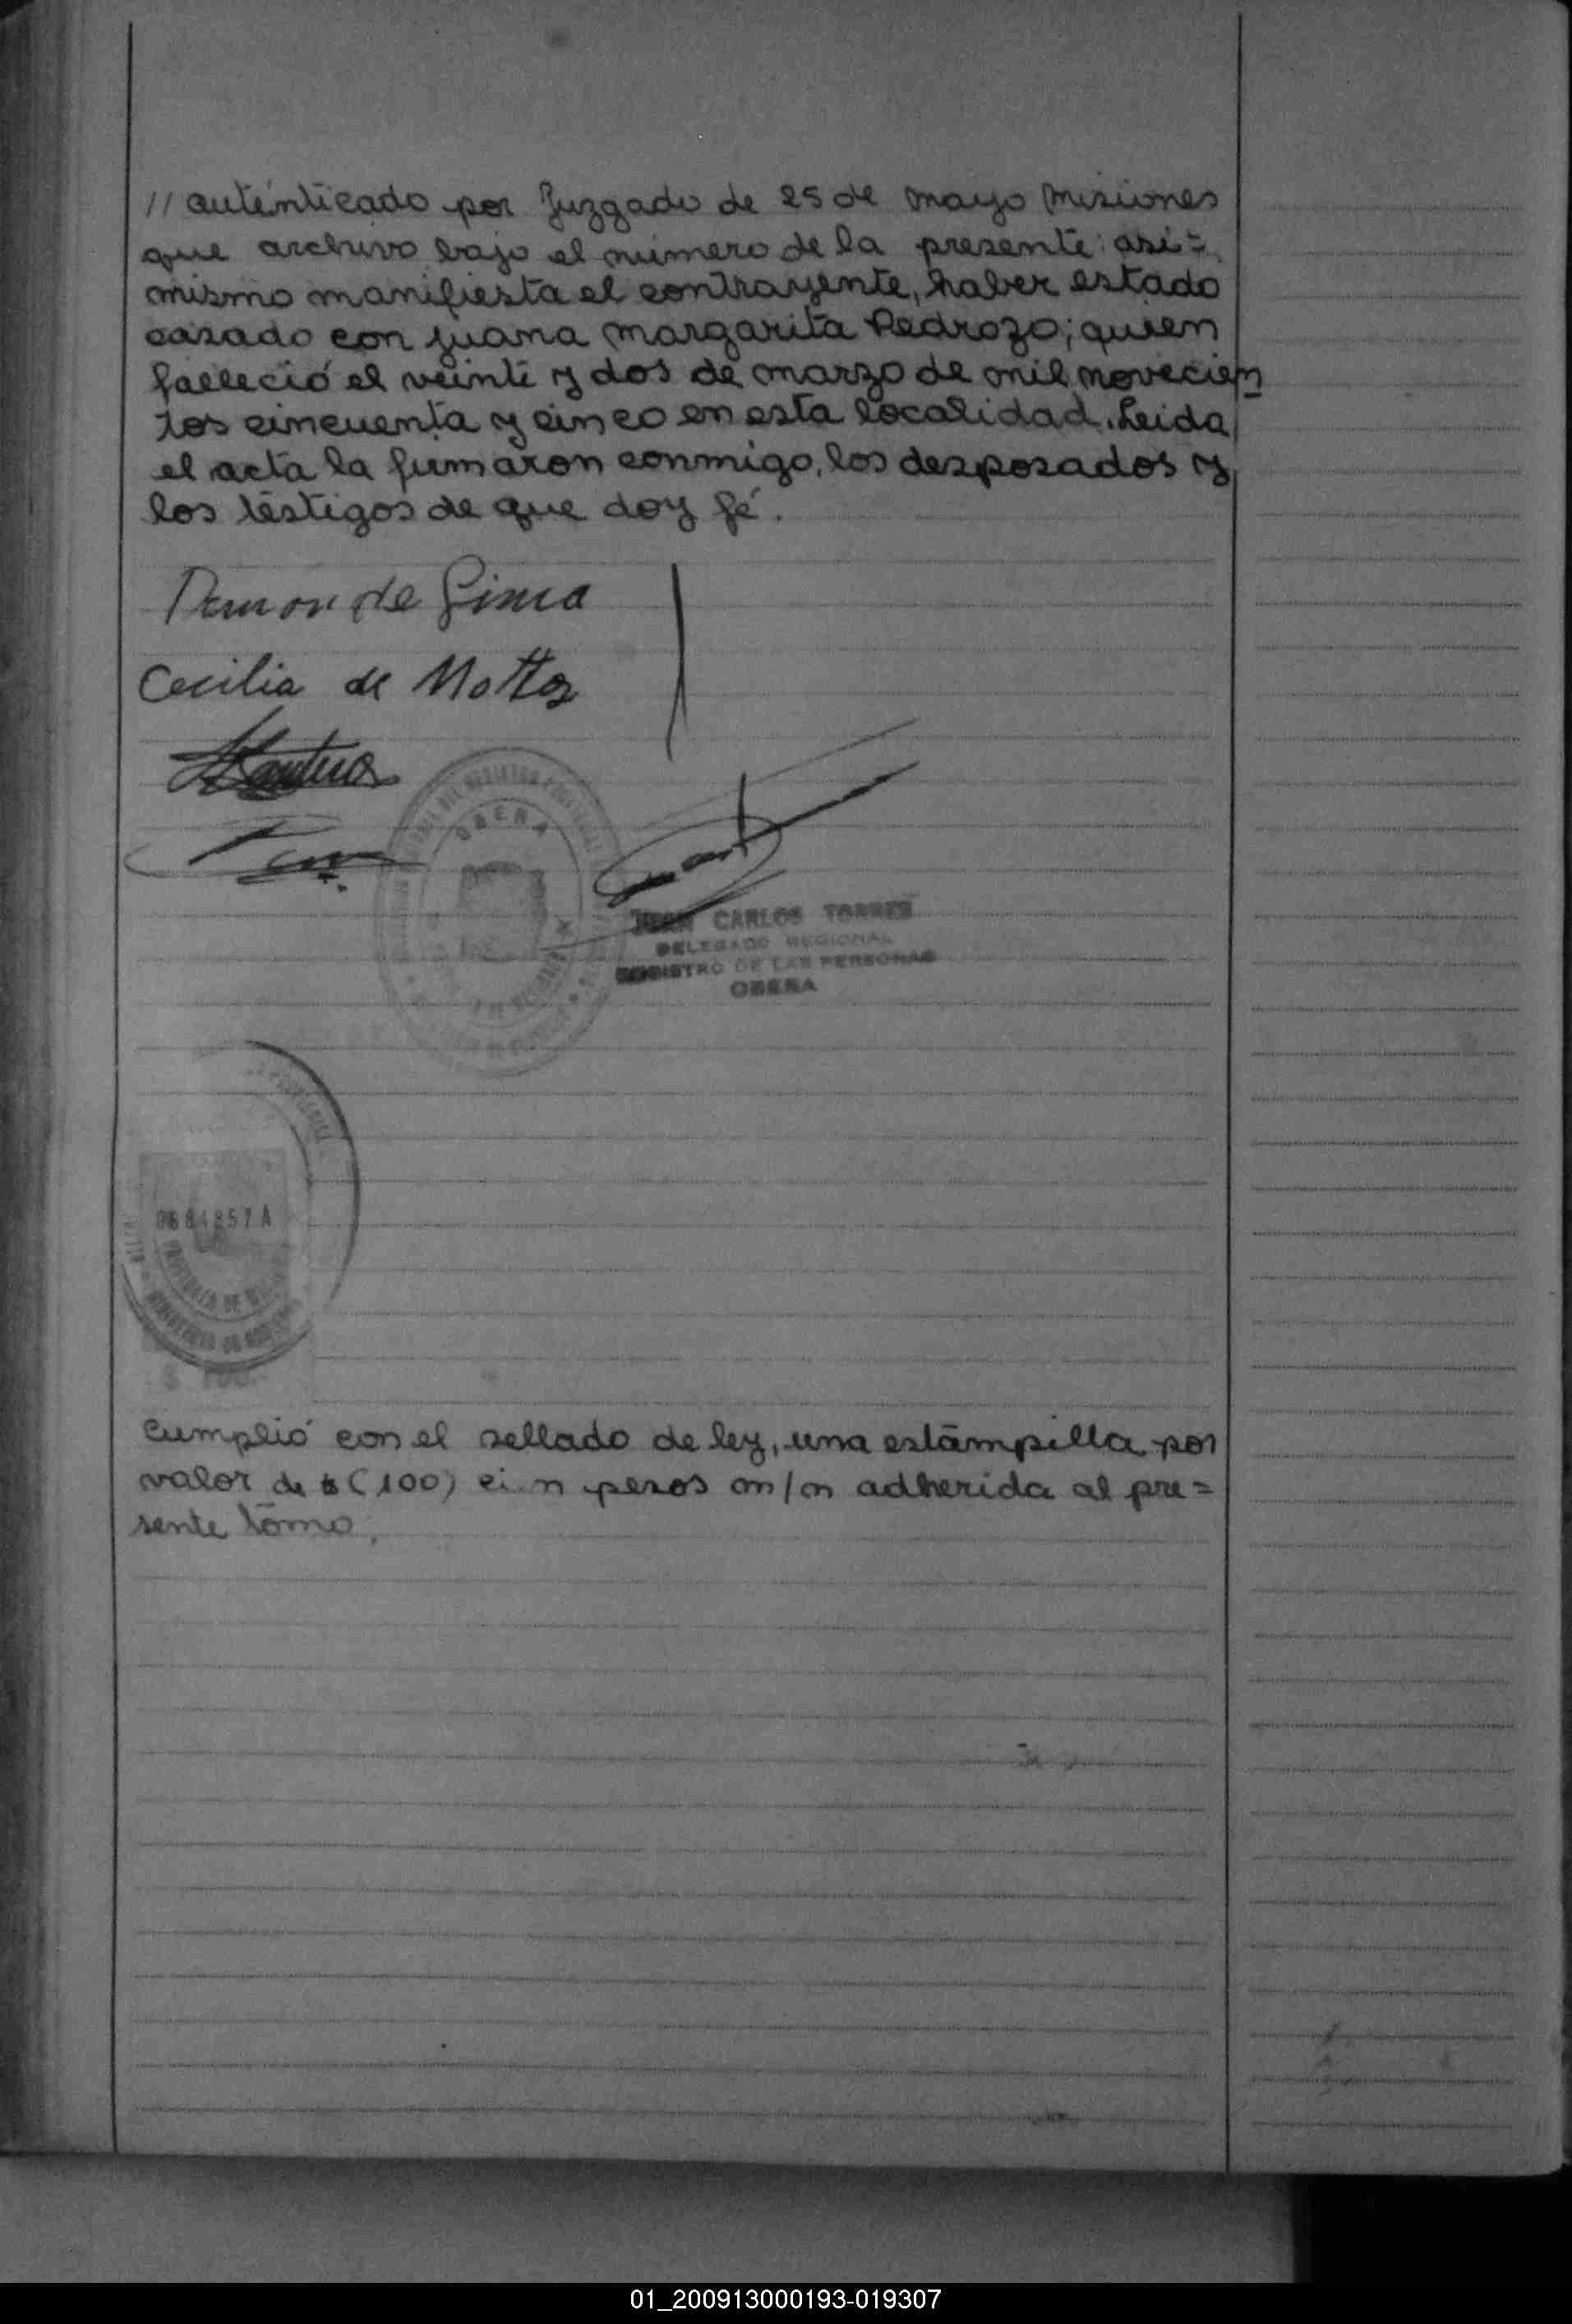 // auténticado por Juzgado de 25 de mayo Misiones
que archivo bajo el número de la presente: asi=
mismo manifiesta el contrayente, haber estado
casado con Juana Margarita Pedrozo; quien
falleció el veinte y dos de marzo de mil novecien
tos cincuenta y cinco en esta localidad. Leida
el acta la firmaron conmigo, los desposados y
los testigos de que doy fé.
de Lima
Cecilia de Mottos
OBERA
JUAN CARLOS TORRES
DELEGADO REGIONAL
REGISTRO DE LAS PERSONAS
OBERA
PROVINCIA DE
$ 100.-
Cumplió con el sellado de ley, una estampilla por
valor de $ (100) ci n pesos m/n adherida al pre=
sente tomo.
01_200913000193-019307